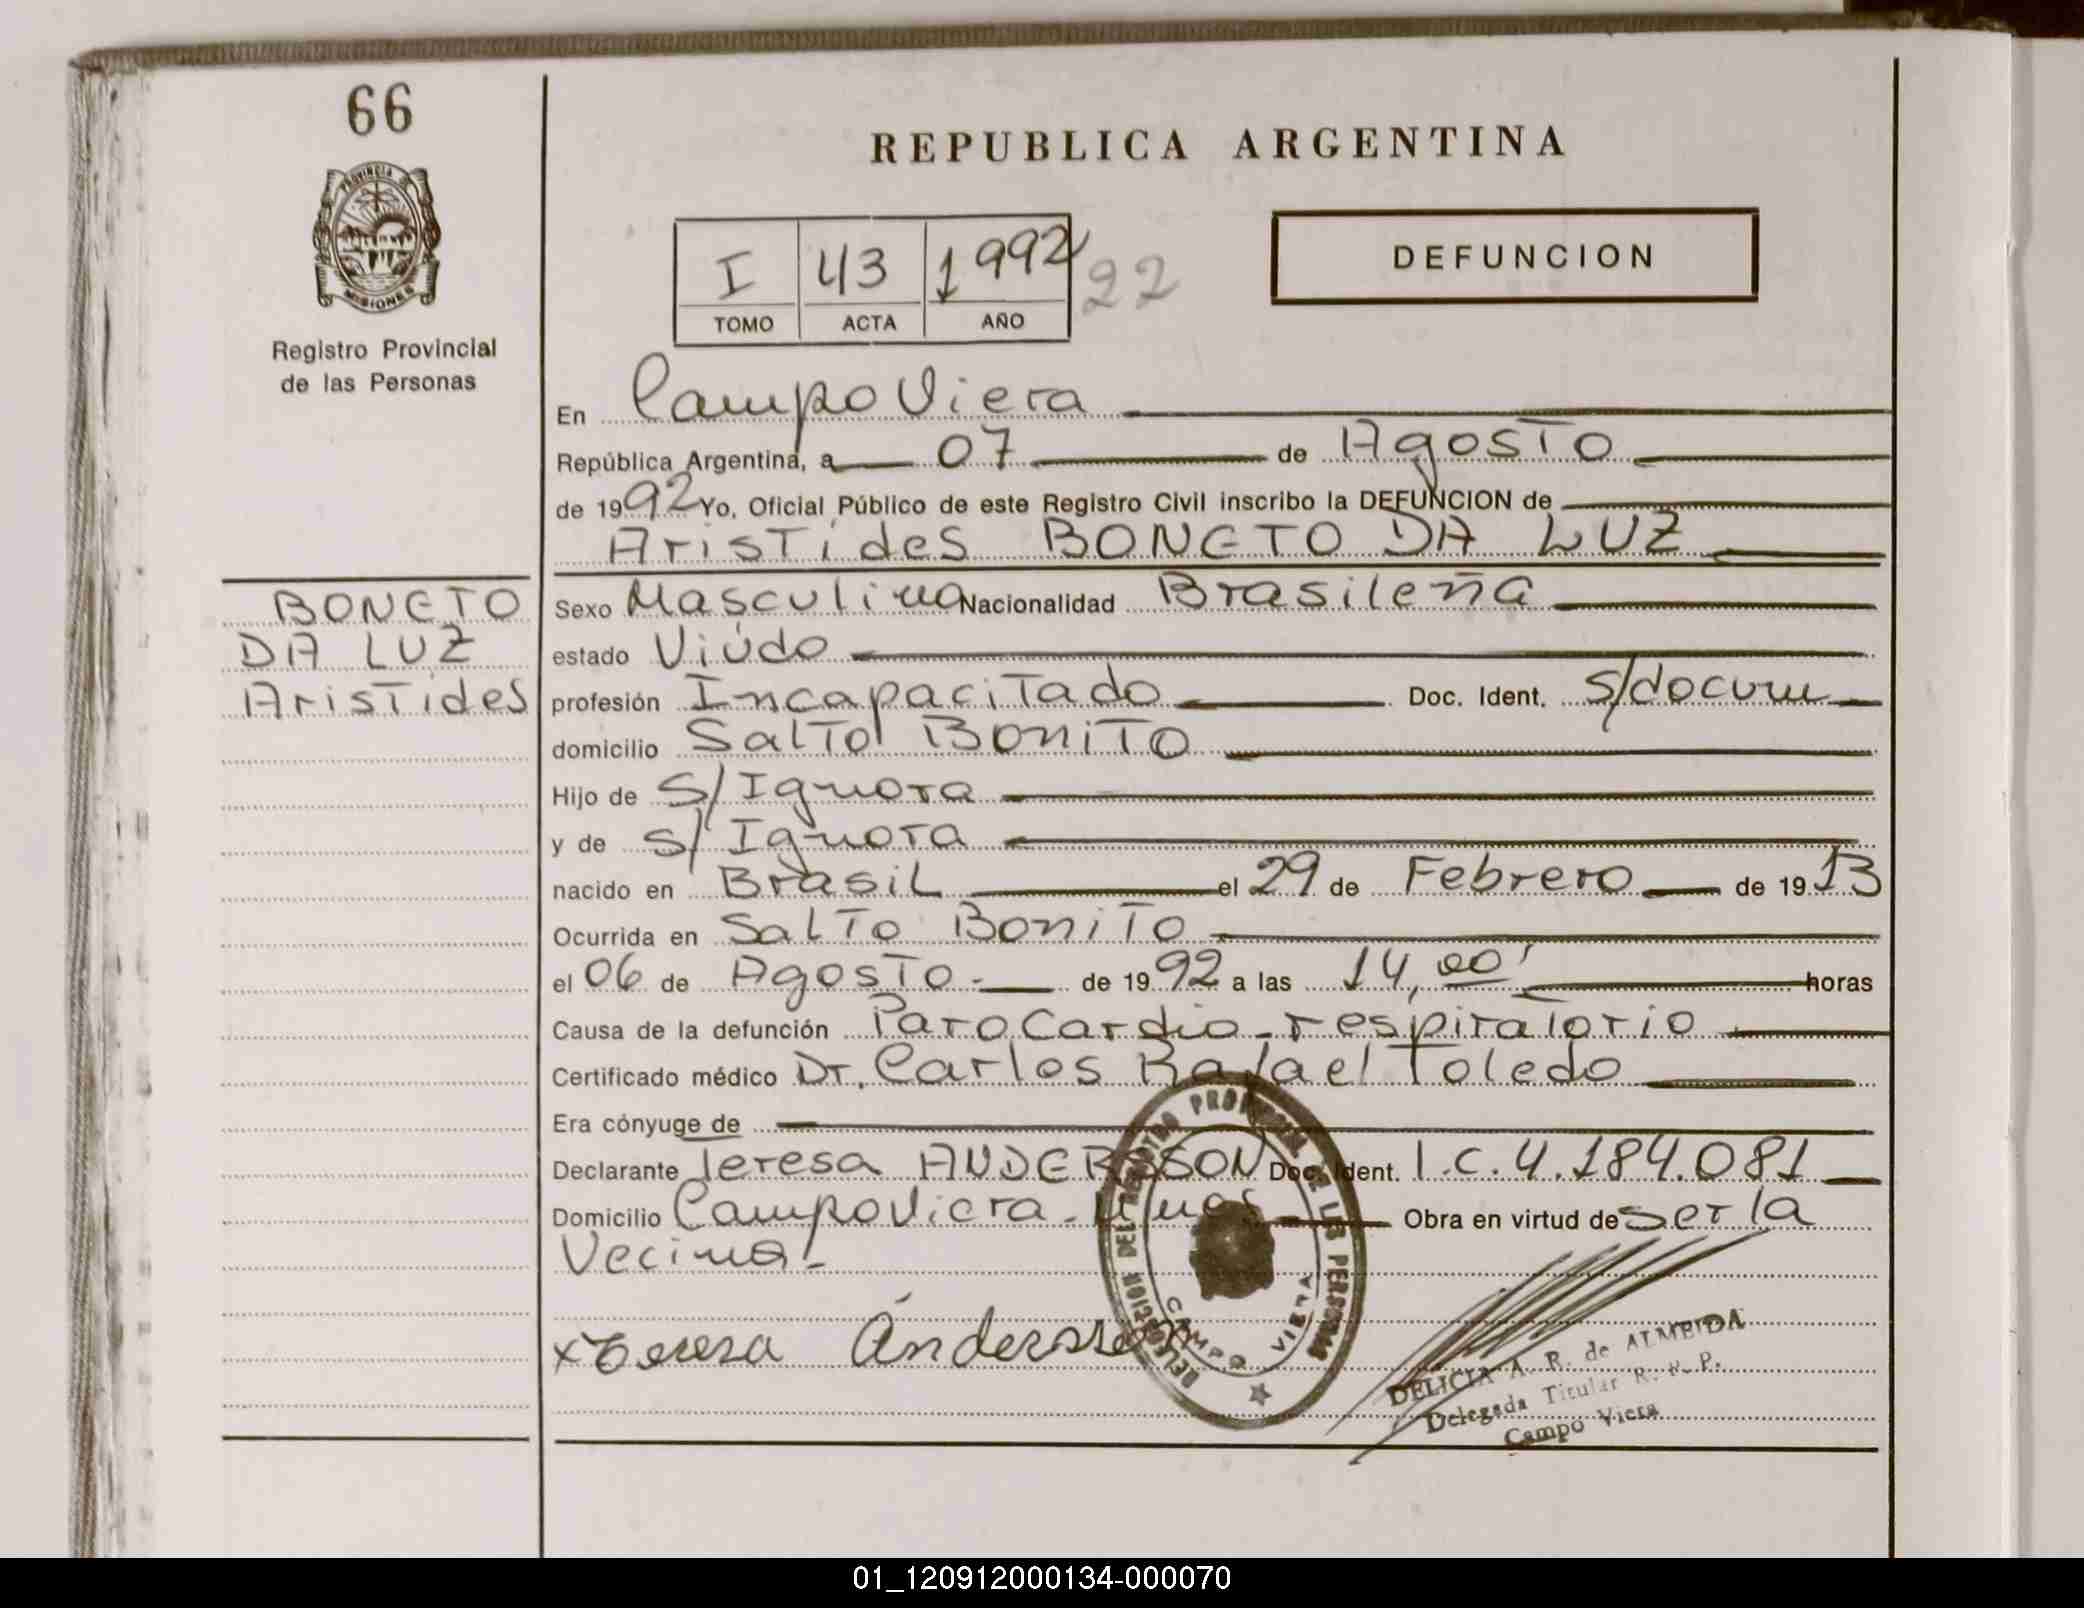 66
PROVINCIA DE
MISIONES
Registro Provincial
de las Personas
REPUBLICA ARGENTINA
I 43 1992 22
TOMO ACTA AÑO
DEFUNCION
En Campo Viera
República Argentina, a 07 de Agosto
de 1992 Yo, Oficial Público de este Registro Civil inscribo la DEFUNCION de
Aristides BONETO DA LUZ
BONETO
DA LUZ
Aristides
Sexo Masculino Nacionalidad Brasileña
estado Viúdo
profesión Incapacitado Doc. Ident. s/docum
domicilio Salto Bonito
Hijo de s/Ignora
y de s/Ignora
nacido en Brasil el 29 de Febrero de 1913
Ocurrida en Salto Bonito
el 06 de Agosto - de 1992 a las 14,00' horas
Causa de la defunción Paro Cardio-respiratorio
Certificado médico Dr. Carlos Rafael Toledo
Era cónyuge de
Declarante Teresa ANDERSSON Doc. Ident. I.C. 4.184.081
Domicilio Campo Viera - Mnes Obra en virtud de ser la
Vecina.-
x Teresa Andersson
DELEGACION DEL REGISTRO PROVINCIAL DE LAS PERSONAS
CAMPO VIERA
DELICIA A. R. de ALMEIDA
Delegada Titular R. P. P.
Campo Viera
01_120912000134-000070